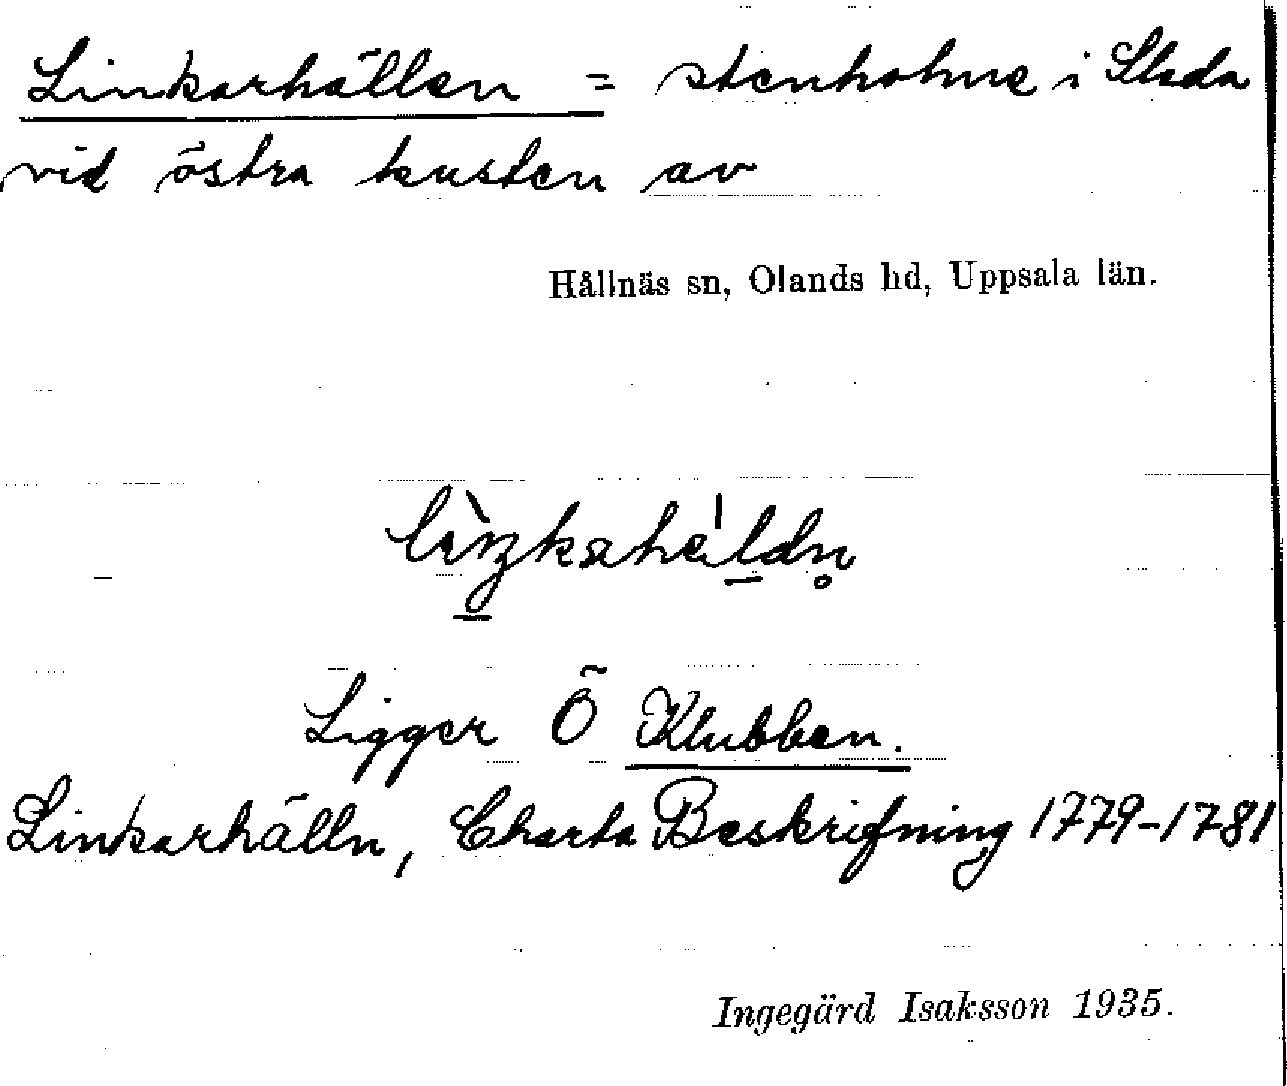 Linkarhällen = stenholme i Slada
vid östra kusten av
Hållnäs sn, Olands hd, Uppsala län.
Ligger Ö Klubben.
Linkarhälln, Charta Beskrifning 1779-1781
Ingegärd Isaksson 1935.